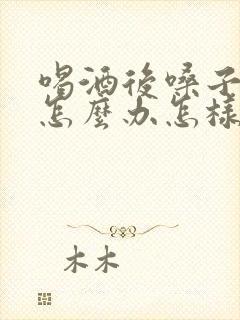 喝酒後嗓子
怎麼办怎樣
木木